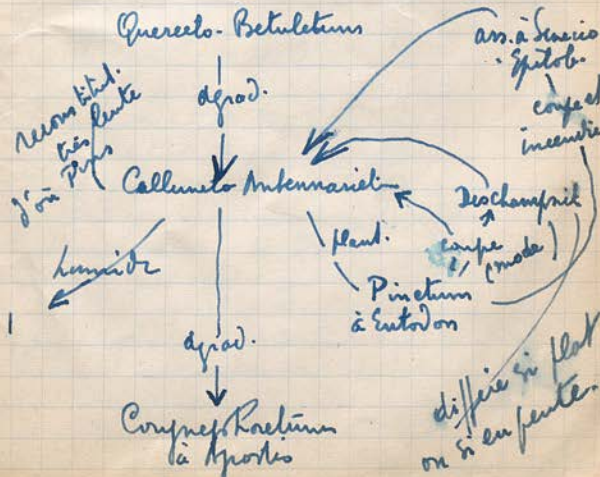 Querceto-Betuletum
ass. à Senecio
- Epilob.
dgrad.
coupe et
incendie
reconstitut.
très lente
d'où Pins
Calluneto Antennarietum
Deschampsie
coupe
(mode)
plant.
humide
Pinetum
à Entodon
dgrad.
Corynephoretum
à Agrostis
diffère si plat
ou si en pente.